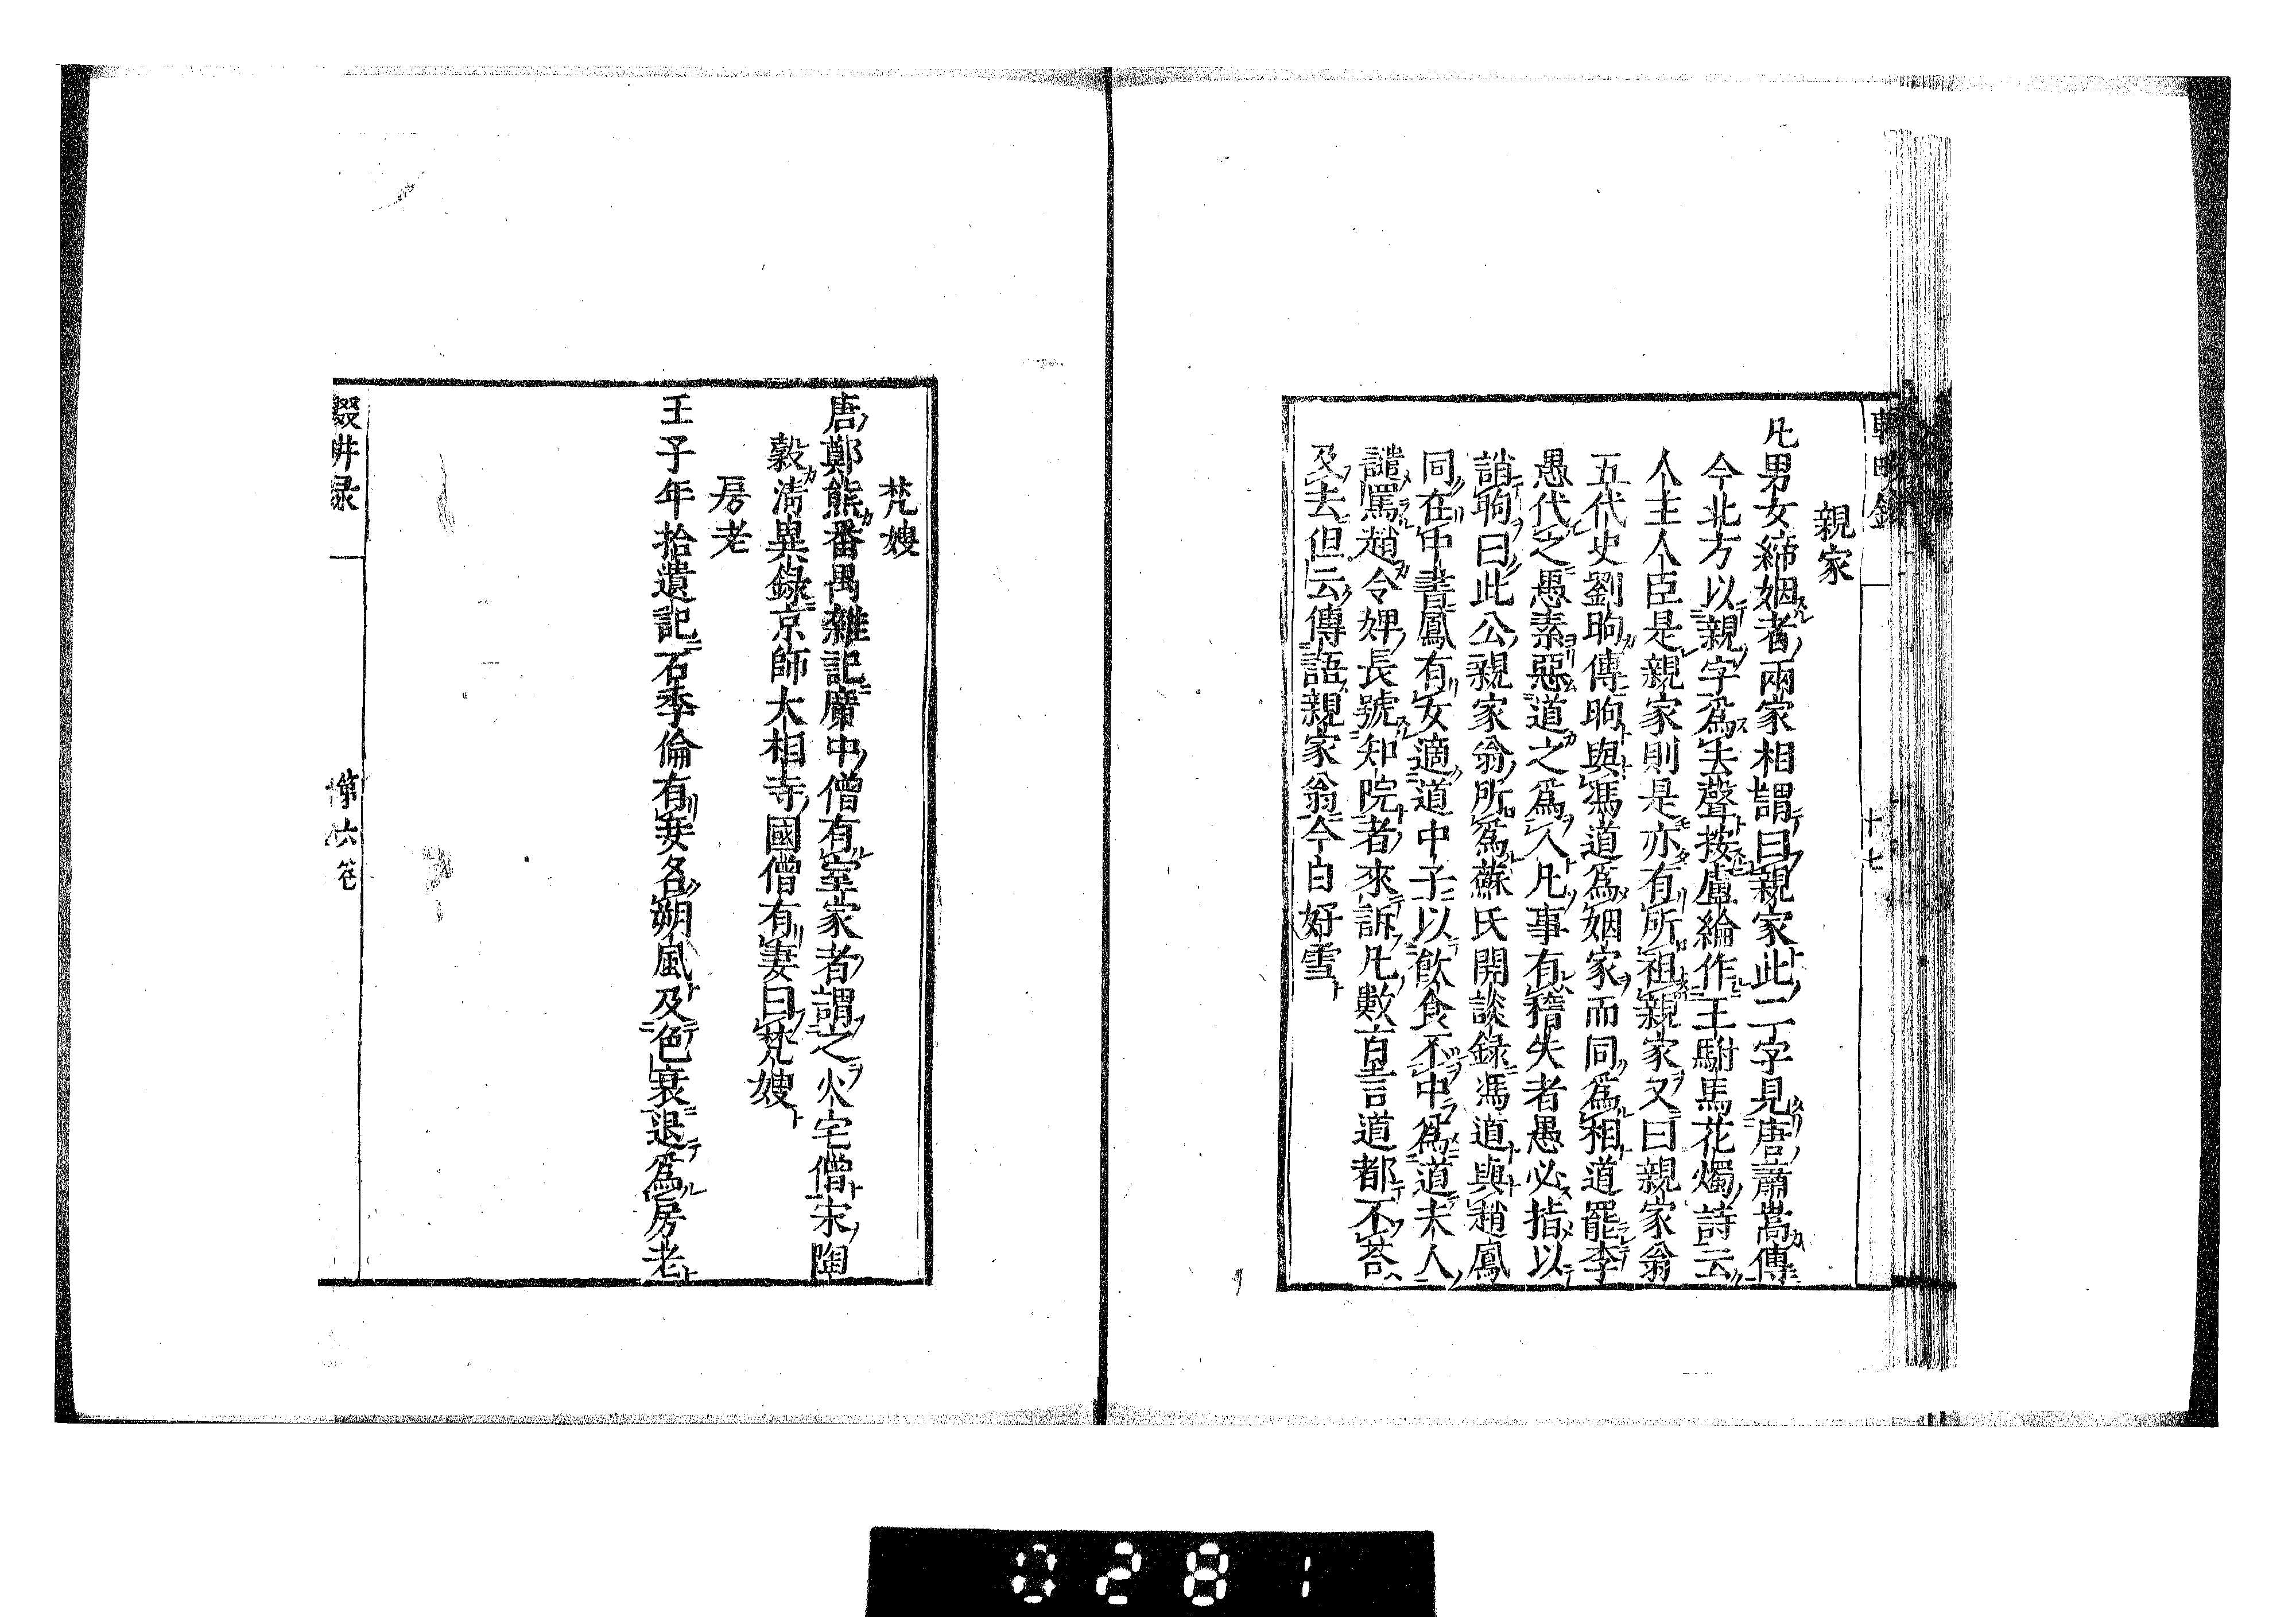 親家
凡男女締姻者兩家相謂曰親家此二字見唐蕭嵩傳
今北方以親字爲去聲按盧綸作王駙馬花燭詩云
人主人臣是親家則是亦有所祖親家又曰親家翁
五代史劉昫傳昫與馮道爲姻家而同爲相道罷李
愚代之愚素惡道之爲人凡事有稽失者愚必指以
誚昫曰此公親家翁所爲蘇氏開談錄馮道與趙鳳
同在中書鳳有女適道中子以飲食不中爲道夫人
譴罵趙令婢長號知院者來訴凡數百言道都不荅
及去但云傳語親家翁今白好雪
十七
梵嫂
唐鄭熊番禺雜記廣中僧有室家者謂之火宅僧宋陶
穀清異録京師大相寺國僧有妻曰梵嫂
房老
王子年拾遺記石季倫有妾名朔風及色衰退爲房老
輟畊录
第六卷
0281